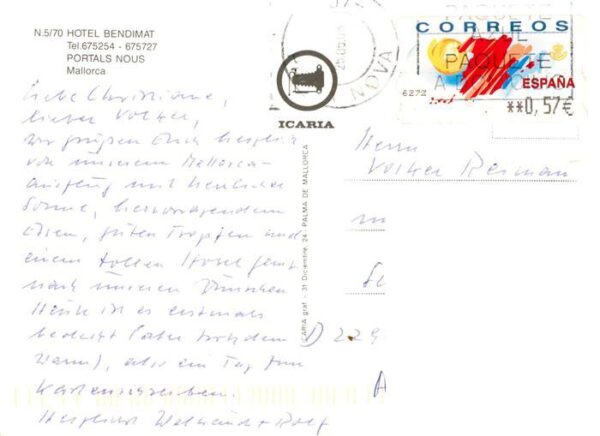 N.5/70 HOTEL BENDIMAT
Tel.675254 - 675727
PORTALS NOUS
Mallorca
Liebe Christiane,
lieber Volker,
wir grüßen Euch herzlich
von unserem Mallorca-
ausflug mit herrlicher
Sonne, hervorragendem
Essen, guten Tropfen und
einem tollen Hotel ganz
nach unseren Wünschen
Heute ist es erstmals
bedeckt (aber trotzdem
warm), also ein Tag zum
Kartenschreiben.
Herzlichst + Rolf
ICARIA
ICARIA graf - 31 Diciembre, 24 - PALMA DE MALLORCA
CORREOS
PAQUETE
AZUL
PAQUETE
ESPAÑA
6272
**0,57€
NOVA
Herrn
Volker
D 229
A